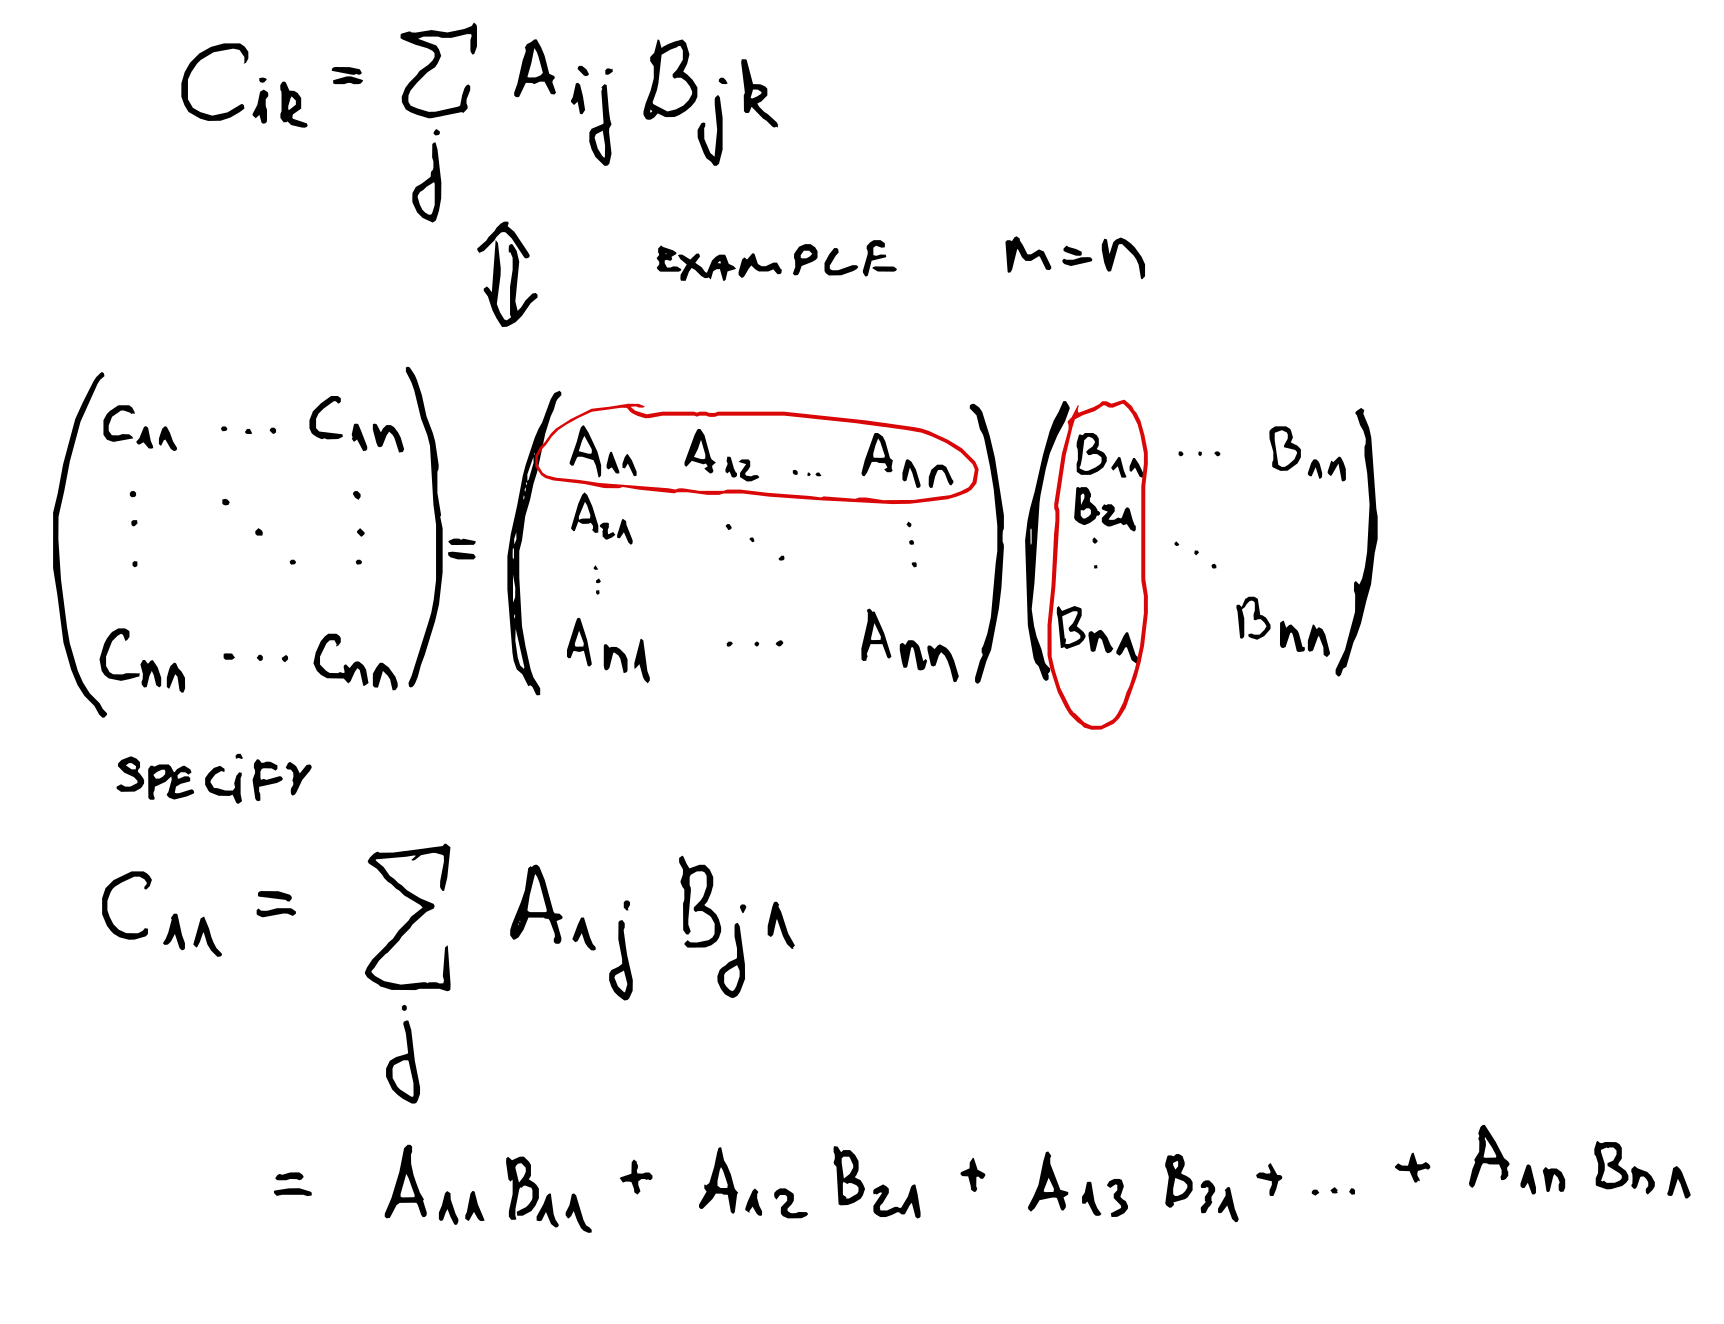 C_{ik} = \sum_j A_{ij} B_{jk}
⇕ EXAMPLE m=n
( C_{11} ... C_{1n} ) = ( A_{11} A_{12} ... A_{1n} ) ( B_{11} ... B_{1n} )
A_{21} B_{21}
C_{n1} ... C_{nn} A_{n1} ... A_{nn} B_{n1} B_{nn}
SPECiFY
C_{11} = \sum_j A_{1j} B_{j1}
= A_{11} B_{11} + A_{12} B_{21} + A_{13} B_{31} + ... + A_{1n} B_{n1}